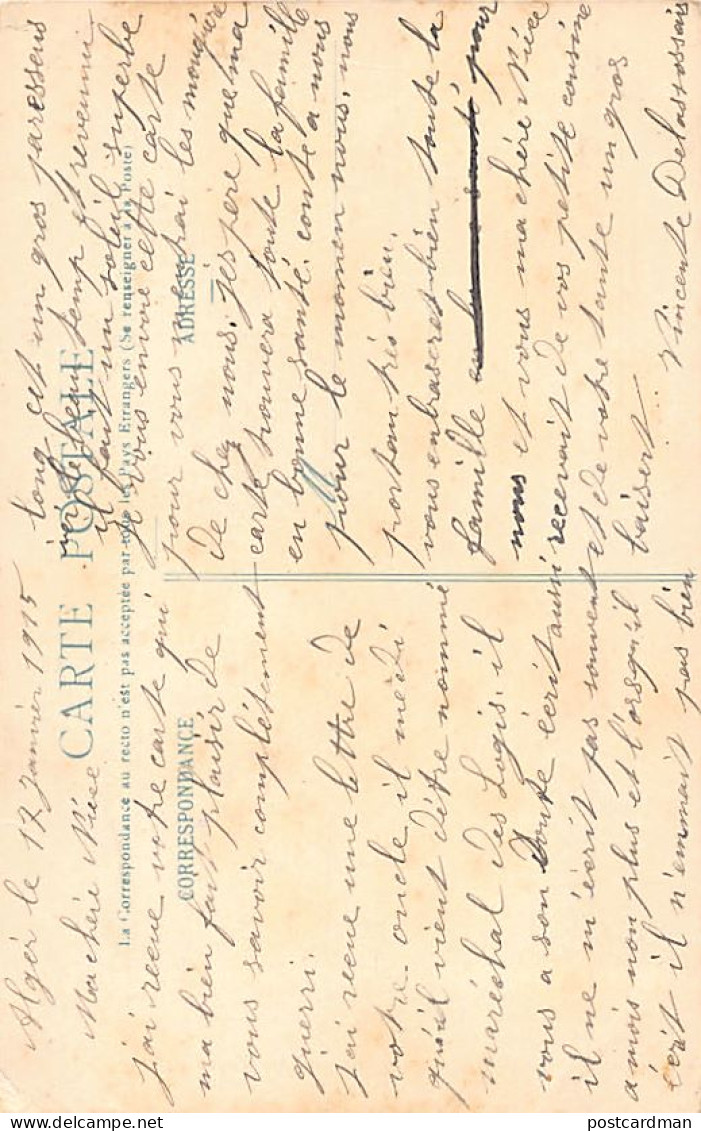 Alger le 17 Janvier 1915
CARTE POSTALE
La Correspondance au recto n'est pas acceptée par tous les Pays Etrangers (Se renseigner à la Poste)
CORRESPONDANCE
ADRESSE
Ma chére Niéce
j'ai recue votre carte qui
ma bien fait plaisir de
vous savoir complétement
guerri.
j'ai recue une lettre de
votre oncle il me di
qu'il vient d'être nommé
maréchal des Logis. il
vous a son doute écrit aussi
il ne m'écrit pas souvent
a mois non plus et l'orsqu'il
écrit il n'emmait pas bien
long est un gros paresseus
ici le beau temp est revenni
il fait un soleil superbe
je vous envoie cette carte
pour vous
de chez nous. j'espere que ma
carte trouvera toute la famille
en bonne santé. conte a nous
pour le momen nous, nous
portam trés bien.
vous enbraseret bien toute la
famille pour
nous et vous ma chére Niéce
recevait de vos petite cousine
et de votre tante un gros
baisert. Vincente Delassassais
postcardman